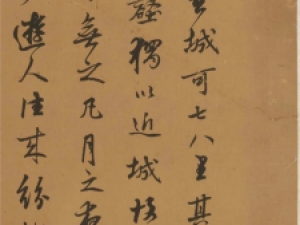 城可七八里其
獨以近城故
無之凡月之
遊人往來紛